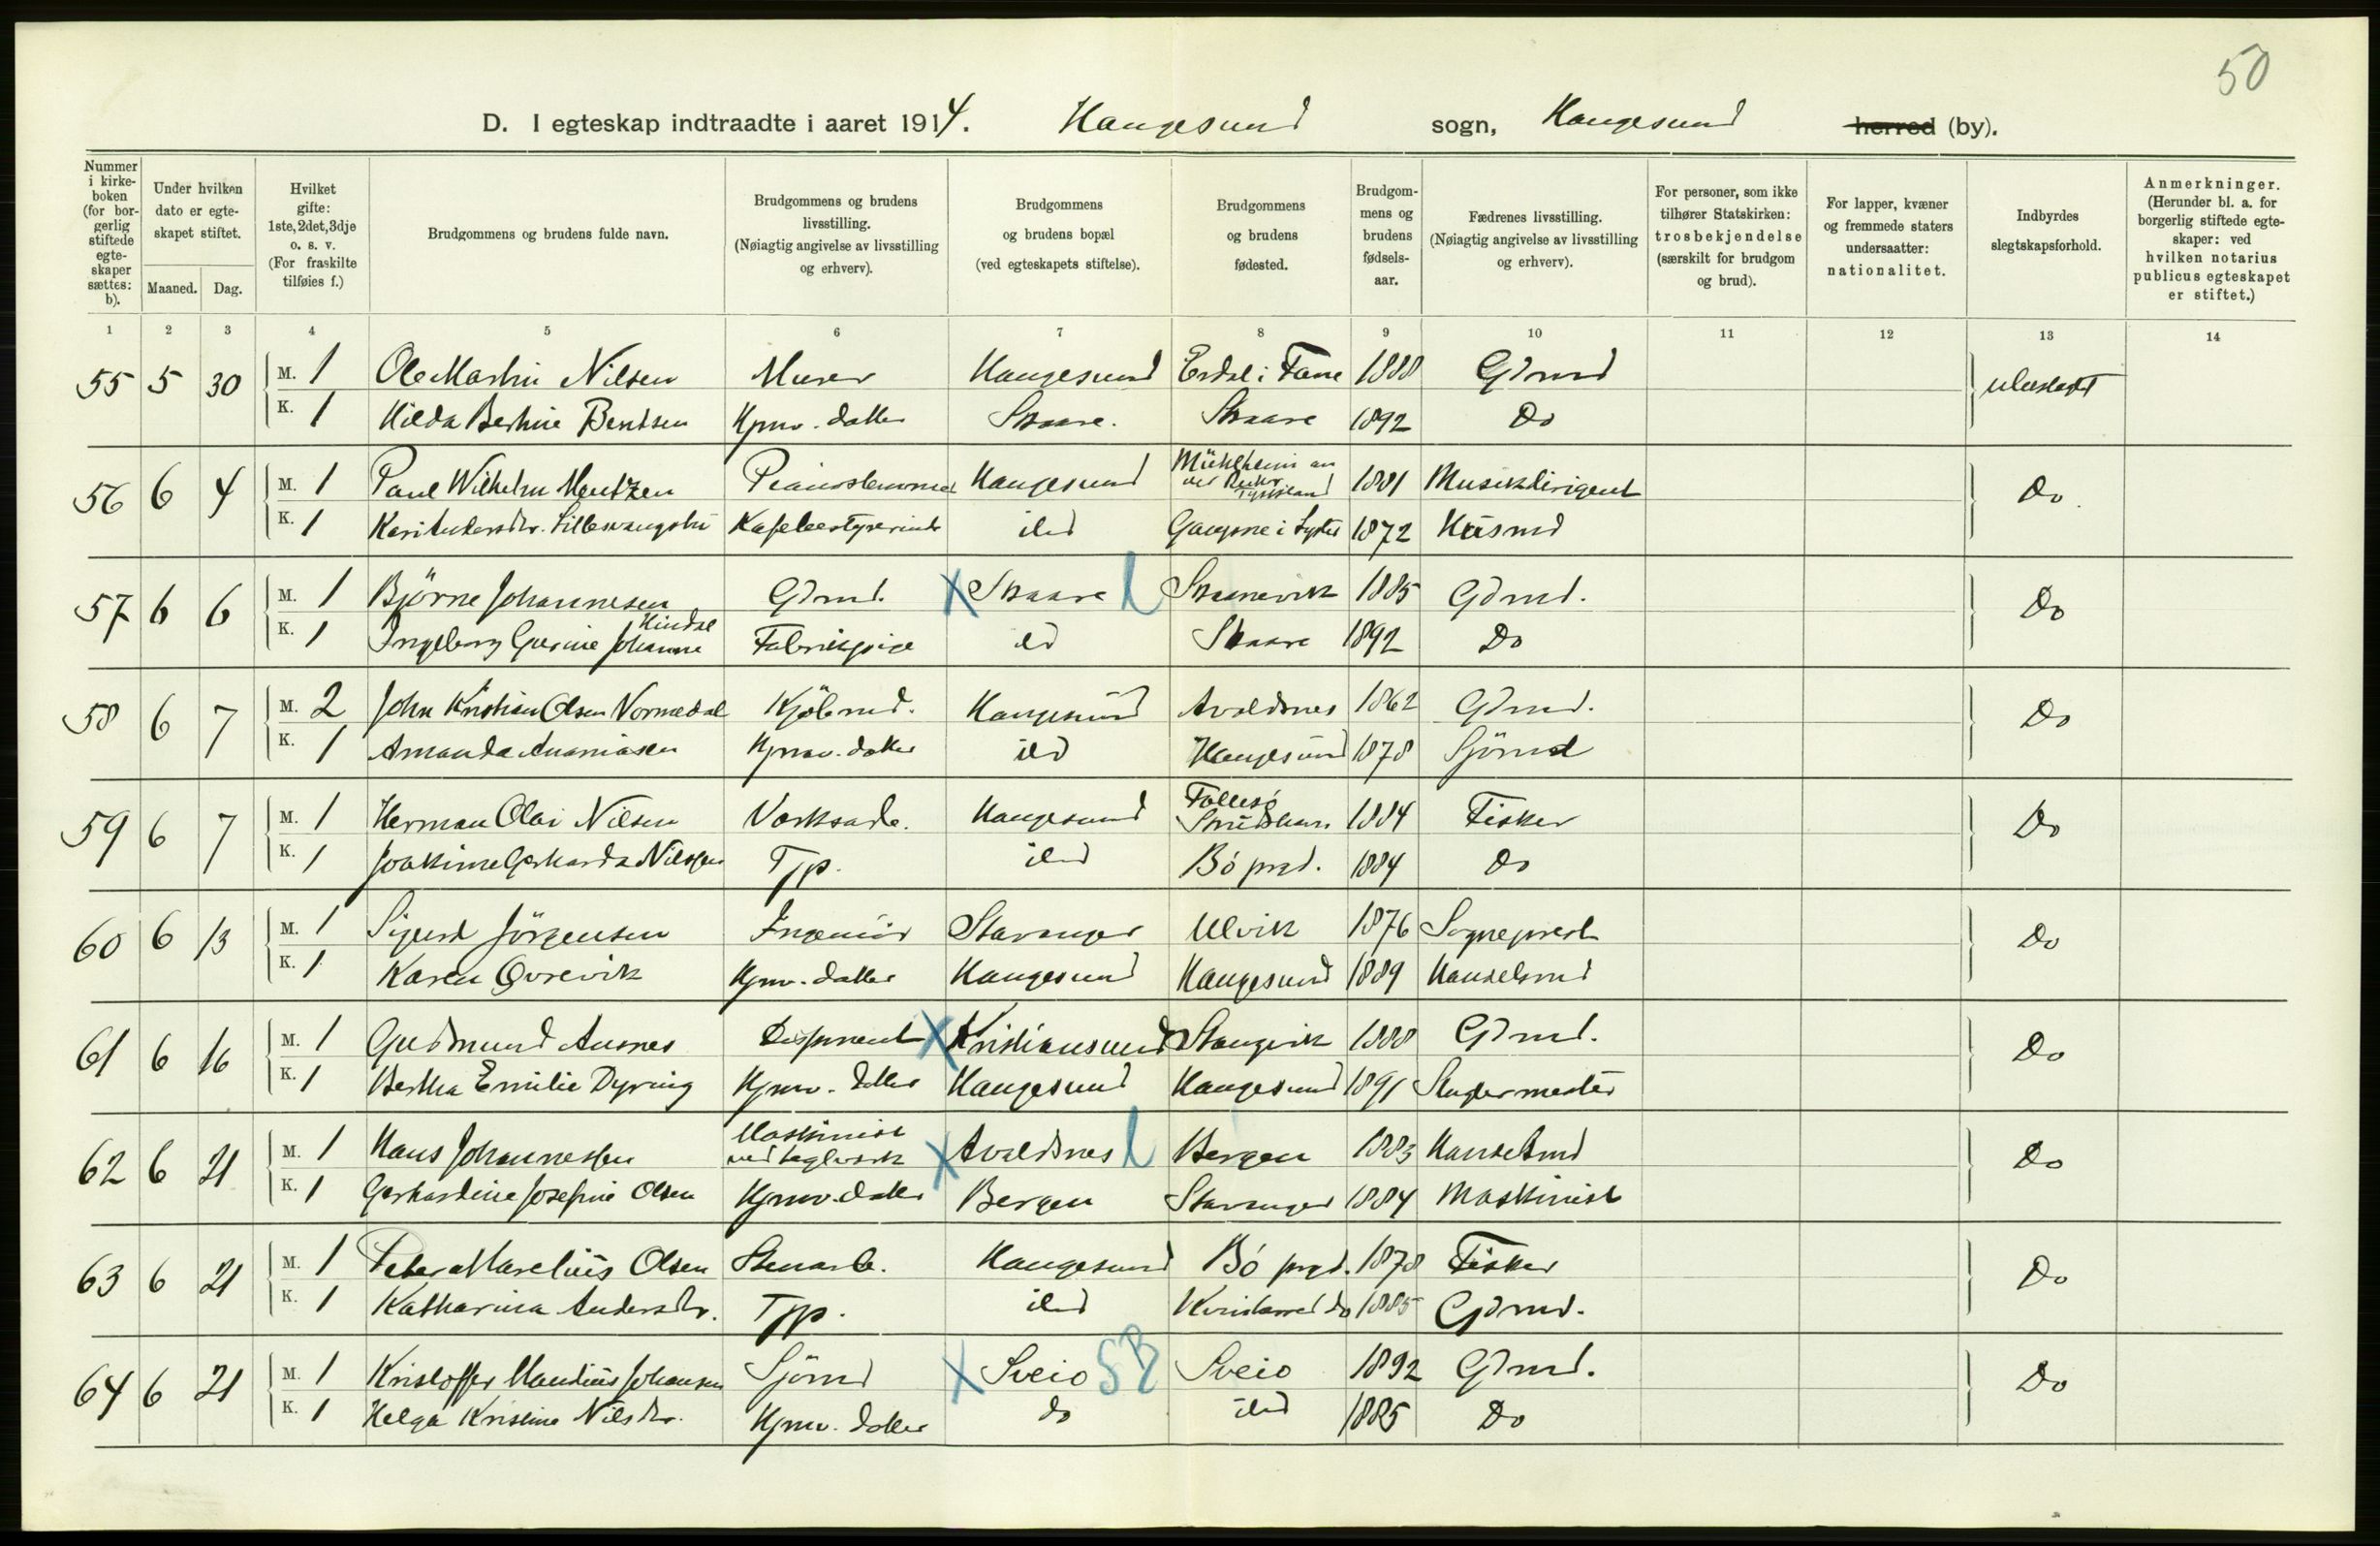 50
D. I egteskap indtraadte i aaret 1914. Haugesund sogn, Haugesund herred (by).
Nummer i kirke-boken (for bor-gerlig stiftede egte-skaper sættes: b).
Under hvilken dato er egte-skapet stiftet.
Maaned. Dag.
Hvilket gifte: 1ste, 2det, 3dje o. s. v. (For fraskilte tilføies f.)
Brudgommens og brudens fulde navn.
Brudgommens og brudens livsstilling. (Nøiagtig angivelse av livsstilling og erhverv).
Brudgommens og brudens bopæl (ved egteskapets stiftelse).
Brudgommens og brudens fødested.
Brudgom-mens og brudens fødsels-aar.
Fædrenes livsstilling. (Nøiagtig angivelse av livsstilling og erhverv).
For personer, som ikke tilhører Statskirken: trosbekjendelse (særskilt for brudgom og brud).
For lapper, kvæner og fremmede staters undersaatter: nationalitet.
Indbyrdes slegtskapsforhold.
Anmerkninger. (Herunder bl. a. for borgerlig stiftede egte-skaper: ved hvilken notarius publicus egteskapet er stiftet.)
1 2 3 4 5 6 7 8 9 10 11 12 13 14
55 5 30 M. 1 Ole Martin Nilsen Murer Haugesund Erdal i Fane 1888 Gdmd ubeslegtet
K. 1 Hilda Bertine Bendsen Hjmv. datter Skaare. Skaare 1892 Do
56 6 4 M. 1 Paul Wilhelm Mentzen Pianostemmer Haugesund Mühlheim an der Ruhr Tyskland 1881 Musikdirigent Do.
K. 1 Kari Andersdtr. Kafebestyrerinde ibd i Lyster 1872 Husmd
57 6 6 M. 1 Björne Johannesen Gdmd. X Skaare l Skaanevik 1885 Gdmd. Do
K. 1 Ingeborg Gurine Johanne Kindal Fabrikpige ibd Skaare 1892 Do
58 6 7 M. 2 John Kristian Olsen Vormedal Kjöbmd. Haugesund Avaldsnes 1862 Gdmd. Do
K. 1 Amanda Ananiasen Hjmv. datter ibd Haugesund 1878 Sjömd
59 6 7 M. 1 Herman Olai Nilsen Verksarb. Haugesund Follesö Strudshavn 1884 Fisker Do
K. 1 Joakime Gerharda Nilssen Tjp. ibd Bö pgd. 1884 Do
60 6 13 M. 1 Sigurd Jörgensen Ingeniör Stavanger Ulvik 1876 Sogneprest Do
K. 1 Karen Qvrevik Hjmv. datter Haugesund Haugesund 1889 Handelsmd
61 6 16 M. 1 Gudmund Ansnes Disponent X Kristiansund Stangvik 1888 Gdmd. Do
K. 1 Bertha Emilie Dyring Hjmv. datter Haugesund Haugesund 1891 Slagtermester
62 6 21 M. 1 Hans Johannessen Maskinist ved teglverk X Avaldsnes l Bergen 1883 Handelsmd Do
K. 1 Gerhardine Josefine Olsen Hjmv. datter Bergen Stavanger 1884 Maskinist
63 6 21 M. 1 Peter Marelius Olsen Stenarb. Haugesund Bö pgd. 1878 Fisker Do
K. 1 Katharina Andersdtr. Tjp. ibd do 1885 Gdmd.
64 6 21 M. 1 Kristoffer Mandius Johansen Sjömd X Sveio SB Sveio 1892 Gdmd. Do
K. 1 Helga Kristine Nilsdtr. Hjmv. datter do ibd 1885 Do